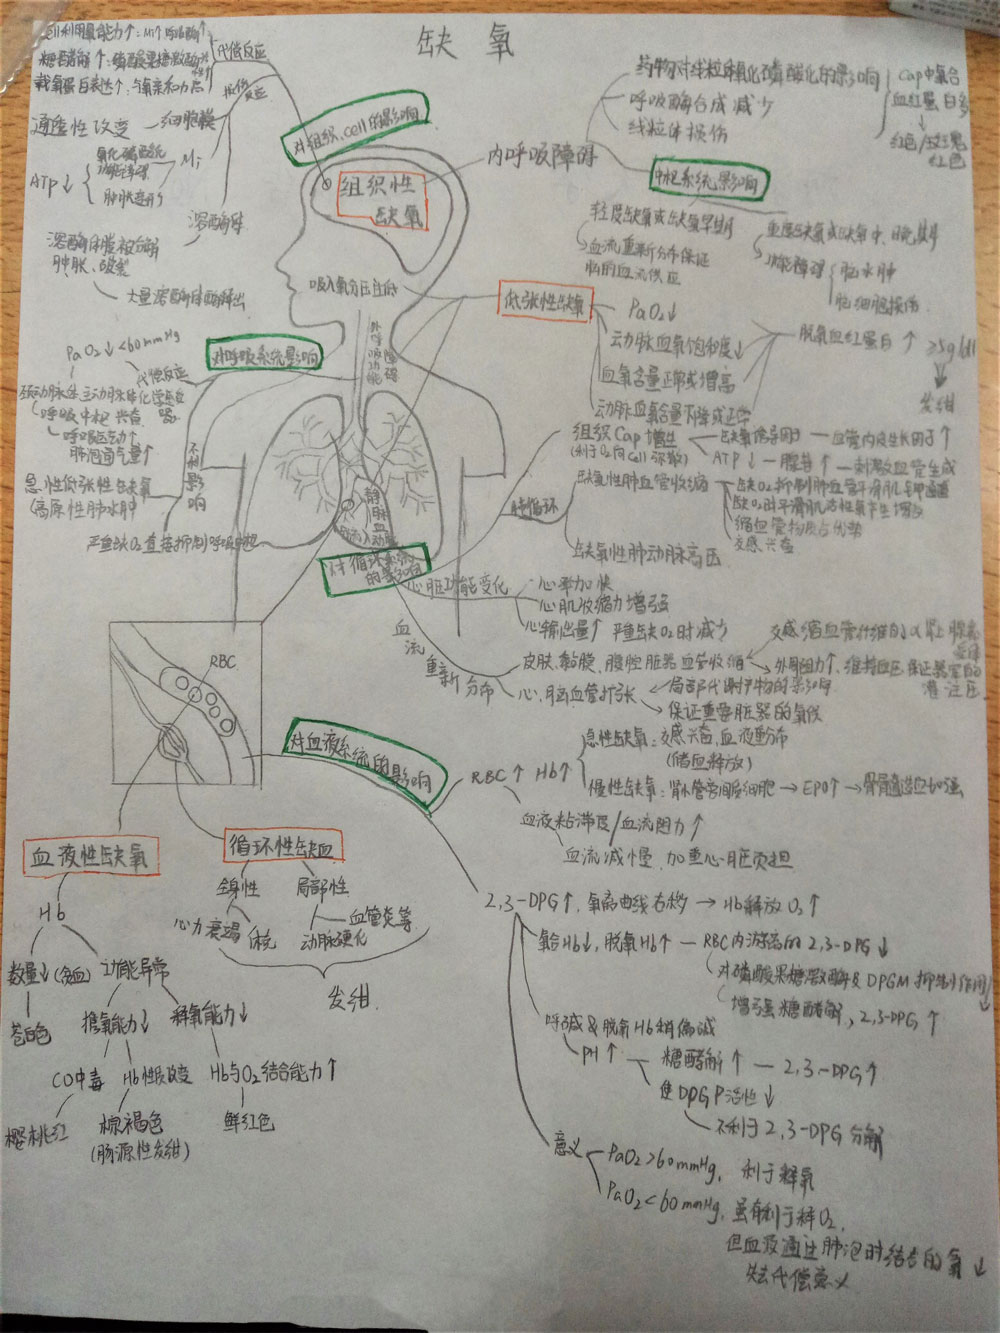 缺 氧
利用氧能力↑：Mi↑ 呼吸酶↑
糖酵解↑：磷酸果糖激酶
载氧蛋白表达↑：与氧亲和力高
代偿反应
损伤反应
通透性改变 — 细胞膜
氧化磷酸化
功能障碍
ATP↓
肿胀变形
Mi
溶酶体
溶酶体膜被台解
肿胀、破裂
大量溶酶体酶释出
对组织、cell的影响
组织性
缺氧
内呼吸障碍
药物对线粒体氧化磷酸化的影响
呼吸酶合成减少
线粒体损伤
Cap中氧合
血红蛋白多
红色/玫瑰
红色
中枢系统影响
轻度缺氧或缺氧早期
血流重新分布保证
脑的血流供应
重度缺氧或缺氧中、晚期
功能障碍
脑水肿
脑细胞损伤
吸入氧分压过低
外呼吸功能障碍
低张性缺氧
PaO₂↓
动脉血氧饱和度↓
血氧容量正常或增高
动脉血氧含量下降或正常
脱氧血红蛋白↑ ≥5g/dl
发绀
对呼吸系统影响
PaO₂↓<60mmHg
代偿反应
颈动脉体 主动脉体化学感受器
呼吸中枢兴奋
呼吸运动↑
肺泡通气量↑
不利影响
急性低张性缺氧
(高原性肺水肿
严重缺O₂直接抑制呼吸中枢
静脉血流入动脉
组织Cap增生
(利于O₂向Cell弥散)
缺氧诱导因子 — 血管内皮生长因子↑
ATP↓ — 腺苷↑ — 刺激血管生成
肺循环
缺氧性肺血管收缩
缺O₂抑制肺血管平滑肌钾通道
缺O₂时平滑肌活性氧产生增多
缩血管物质占优势
交感兴奋
缺氧性肺动脉高压
对循环系统
的影响
心脏功能变化
心率加快
心肌收缩力增强
心输出量↑ 严重缺O₂时减少
血流重新分布
皮肤、黏膜、腹腔脏器血管收缩
交感缩血管纤维
外周阻力↑，维持血压
灌注压
心、脑血管扩张
局部代谢产物的影响
保证重要脏器的氧供
RBC
对血液系统的影响
RBC↑ Hb↑
急性缺氧：交感兴奋，血液重分布
(储血释放)
慢性缺氧：肾小管旁间质细胞→EPO↑→骨髓造血加强
血液粘滞度/血流阻力↑
血流减慢，加重心脏负担
血液性缺氧
Hb
数量↓(贫血)
苍白色
功能异常
携氧能力↓
释氧能力↓
CO中毒
樱桃红
Hb性质改变
棕褐色
(肠源性发绀)
Hb与O₂结合能力↑
鲜红色
循环性缺血
全身性
心力衰竭
休克
局部性
血管炎等
动脉硬化
发绀
2,3-DPG↑，氧离曲线右移→Hb解放O₂↑
氧合Hb↓，脱氧Hb↑ — RBC内游离的2,3-DPG↓
对磷酸果糖激酶&DPGM抑制作用↓
增强糖酵解，2,3-DPG↑
呼碱&脱氧Hb稍偏碱
PH↑
糖酵解↑ — 2,3-DPG↑
使DPGP活性↓
不利于2,3-DPG分解
意义
PaO₂>60mmHg，利于释氧
PaO₂<60mmHg，虽有利于释O₂，
但血液通过肺泡时结合的氧↓
失去代偿意义